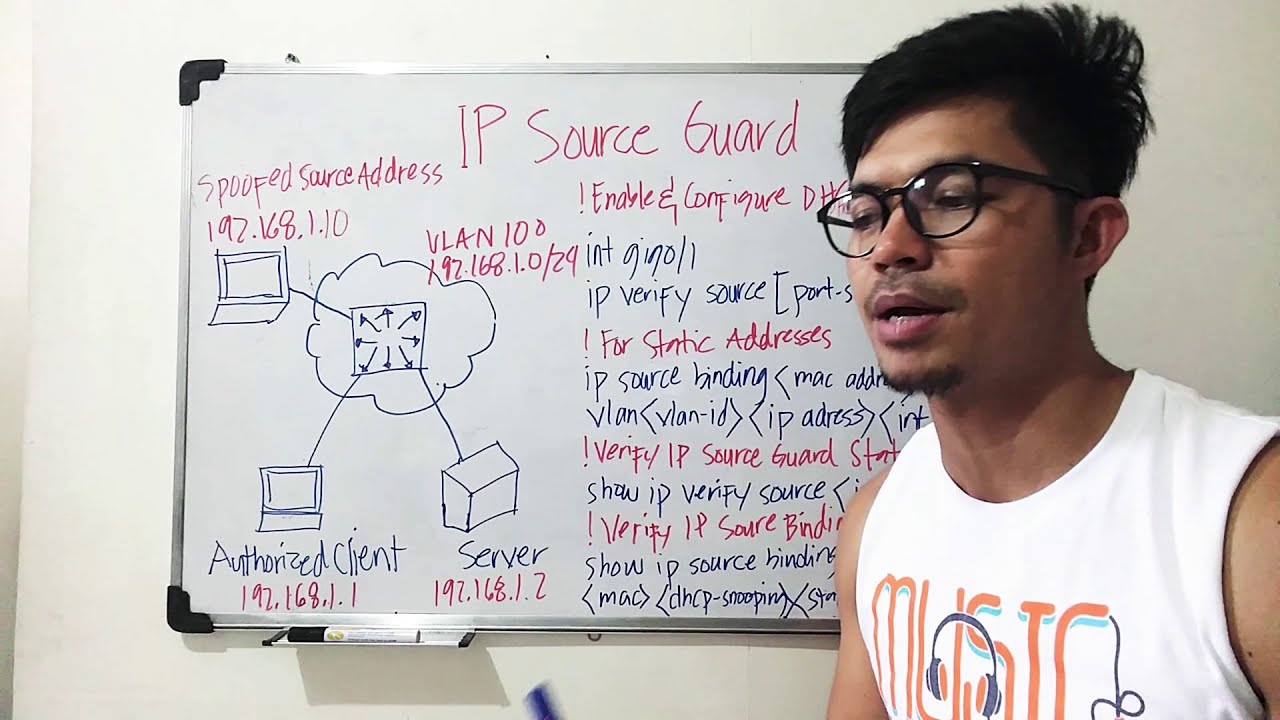 IP Source Guard
Spoofed Source Address
192.168.1.10
VLAN 100
192.168.1.0/24
Authorized Client
192.168.1.1
Server
192.168.1.2
! Enable & Configure
int gig0/1
ip verify source [port-s
! For Static Addresses
ip source binding <mac
vlan <vlan-id> <ip adress> <int
! Verify IP Source Guard Stat
show ip verify source <i
! Verify IP Soure Bindin
show ip source binding
<mac> <dhcp-snooping> <sta
MUSIC